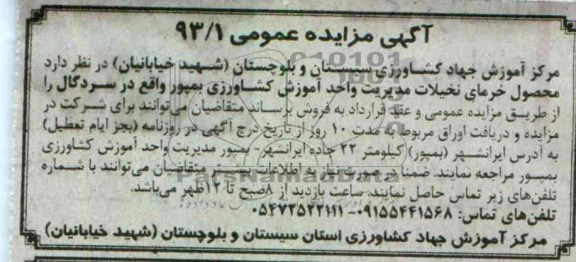 آگهی مزایده عمومی ۹۳/۱
مرکز آموزش جهاد کشاورزی سیستان و بلوچستان (شهید خیابانیان) در نظر دارد
محصول خرمای نخیلات مدیریت واحد آموزش کشاورزی بمپور واقع در سردگال را
از طریق مزایده عمومی و عقد قرارداد به فروش برساند متقاضیان می‌توانند برای شرکت در
مزایده و دریافت اوراق مربوطه به مدت ۱۰ روز از تاریخ درج آگهی در روزنامه (بجز ایام تعطیل)
به آدرس ایرانشهر (بمپور) کیلومتر ۲۲ جاده ایرانشهر- بمپور مدیریت واحد آموزش کشاورزی
بمپور مراجعه نمایند. ضمنا در صورت نیاز به اطلاعات بیشتر متقاضیان می‌توانند با شماره
تلفن‌های زیر تماس حاصل نمایند. ساعت بازدید از ۸صبح تا ۱۲ظهر می‌باشد.
تلفن‌های تماس: ۰۹۱۵۵۴۴۱۵۶۸-۰۵۴۷۳۵۲۲۱۱۱
مرکز آموزش جهاد کشاورزی استان سیستان و بلوچستان (شهید خیابانیان)